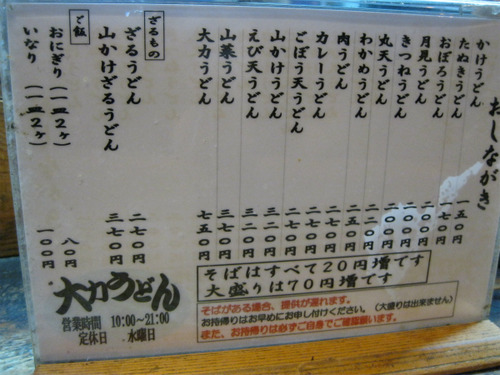 おしながき
かけうどん 一五〇円
たぬきうどん 一七〇円
おぼろうどん
月見うどん
きつねうどん
丸天うどん
わかめうどん
肉うどん
カレーうどん
ごぼう天うどん
山かけうどん
えび天うどん
山菜うどん
大力うどん 七五〇円
ざるもの
ざるうどん 二七〇円
山かけざるうどん 三七〇円
ご飯
おにぎり(一皿2ヶ) 八〇円
いなり(一皿2ヶ) 一〇〇円
そばはすべて20円増です
大盛りは70円増です
そばがある場合、提供が遅れます。
お持帰りはお早めにお申し付けください。(大盛りは出来ません)
また、お持帰りは必ずご自身でご確認願います。
大力うどん
営業時間 10:00~21:00
定休日 水曜日